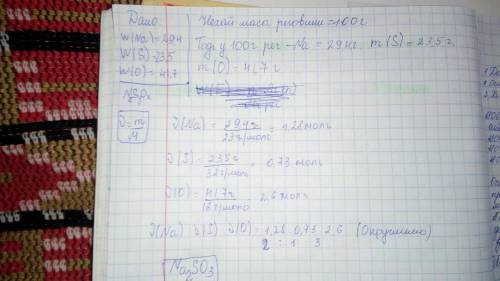 Дано
W(Na)=29,4
W(S)=23,5
W(O)=41,7
ν=m/M
Нехай маса речовини =100г
Тоді у 100г реч-Na = 29,4г; m(S)=23,5г
m(O)=41,7г
ν(Na)=29,4г/23г/моль = 1,28моль
ν(S)=23,5г/32г/моль = 0,73 моль
ν(O)=41,7г/16г/моль 2,6 моль
ν(Na) ν(S) ν(O)=1,28 0,73 2,6 (Округлимо)
2 : 1 3
Na2SO3